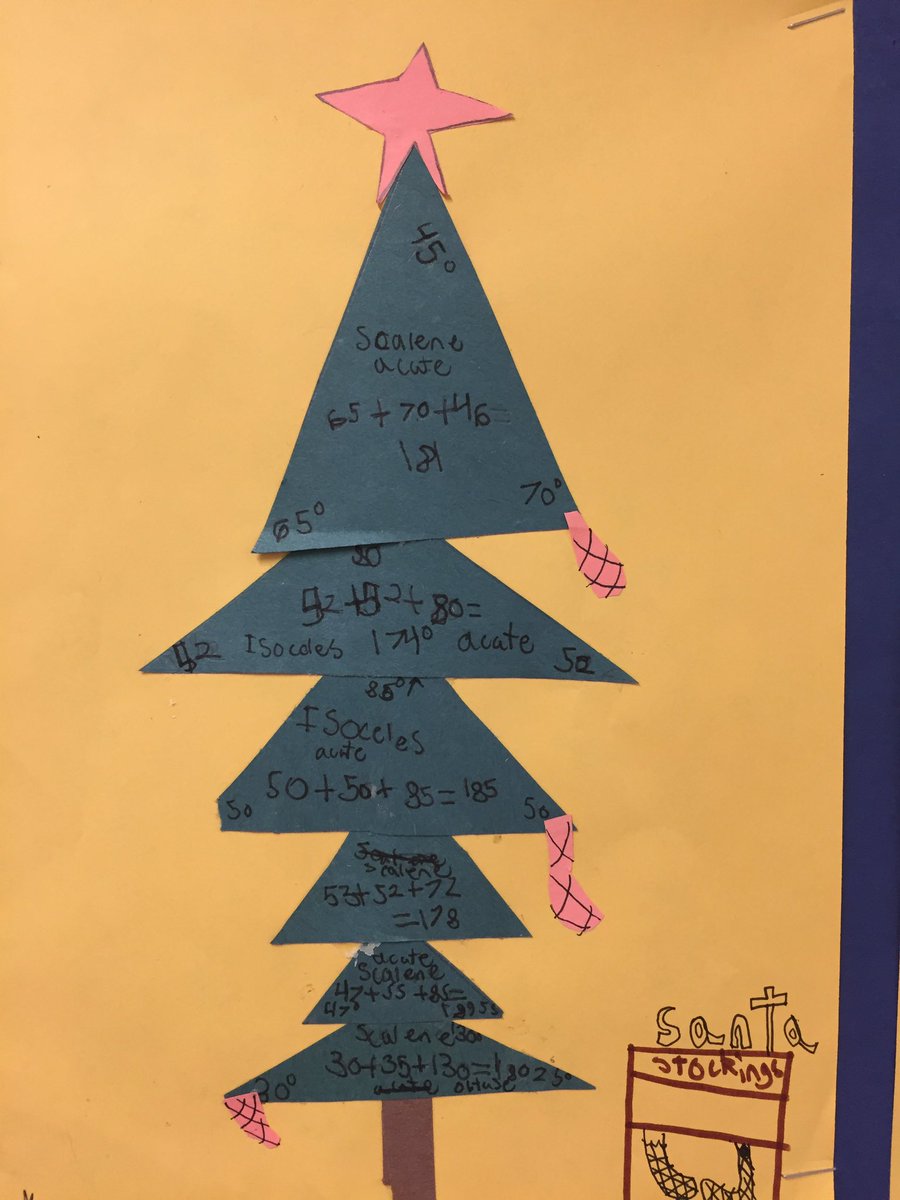 45°
Scalene
acute
65+70+46=
181
65°
70°
80
52+52+80=
52 Isoceles 174° acute 52
85°
Isoceles
acute
50+50+85=185
50
50
scalene
53+52+72
=178
acute
Scalene
47+55+85=
47°
Scalene 130
30+35+130=180
30°
acute obtuse
santa
stockings